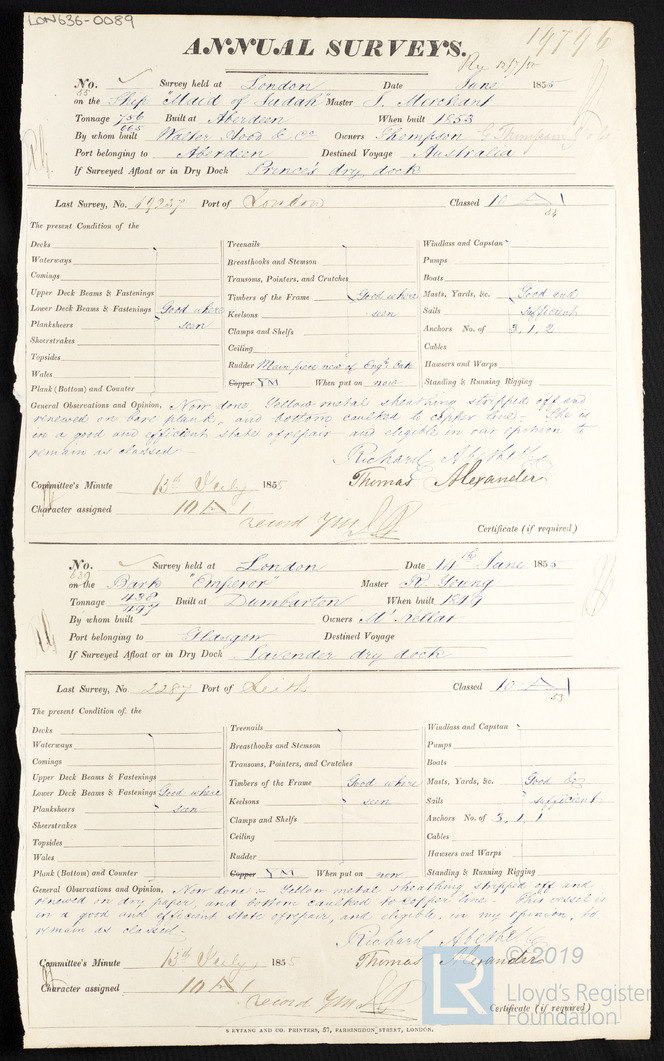 LON636-0089
ANNUAL SURVEYS.
19796
No. Survey held at London Date June 1855
on the Ship "Maid of Judah" Master J. Merchant
Tonnage 756 665 Built at Aberdeen When built 1853
By whom built Walter Hood & Co Owners Thompson
Port belonging to Aberdeen Destined Voyage Australia
If Surveyed Afloat or in Dry Dock Prince's dry dock
Last Survey, No. 19227 Port of London Classed 10 A 1
54
The present Condition of the
Decks Treenails Windlass and Capstan
Waterways Breasthooks and Stemson Pumps
Comings Transoms, Pointers, and Crutches Boats
Upper Deck Beams & Fastenings Timbers of the Frame Good where Masts, Yards, &c. Good and
Lower Deck Beams & Fastenings Good where Keelsons seen Sails sufficient
Planksheers seen Clamps and Shelfs Anchors No. of 3, 1, 2
Sheerstrakes Ceiling Cables
Topsides Rudder Main piece new of Engh. Oak Hawsers and Warps
Wales Copper YM When put on new Standing & Running Rigging
Plank (Bottom) and Counter
General Observations and Opinion, Now done Yellow metal sheathing stripped off and
renewed on bare plank, and bottom caulked to copper line - She is
in a good and efficient state of repair and eligible in our opinion to
remain as classed -
Richard Abethell
Thomas Alexander
Committee's Minute 13th July 1855
Character assigned 10 A 1
record YM
Certificate (if required)
No. Survey held at London Date 14th June 1855
on the Bark "Emperor" Master R. Young
Tonnage 438 497 Built at Dumbarton When built 1849
By whom built Owners McKellar
Port belonging to Glasgow Destined Voyage
If Surveyed Afloat or in Dry Dock Lavender dry dock
Last Survey, No. 2287 Port of Leith Classed 10 A 1
53
The present Condition of the
Decks Treenails Windlass and Capstan
Waterways Breasthooks and Stemson Pumps
Comings Transoms, Pointers, and Crutches Boats
Upper Deck Beams & Fastenings Timbers of the Frame Good where Masts, Yards, &c. Good &
Lower Deck Beams & Fastenings Good where Keelsons seen Sails sufficient
Planksheers seen Clamps and Shelfs Anchors No. of 3, 1, 1
Sheerstrakes Ceiling Cables
Topsides Rudder Hawsers and Warps
Wales Copper YM When put on new Standing & Running Rigging
Plank (Bottom) and Counter
General Observations and Opinion, Now done - Yellow metal sheathing stripped off and
renewed on dry paper, and bottom caulked to copper line - This vessel is
in a good and efficient state of repair, and eligible, in my opinion, to
remain as classed -
Richard Abethell
Thomas Alexander
Committee's Minute 13th July 1855
Character assigned 10 A 1
record YM
Certificate (if required)
SEYFANG AND CO. PRINTERS, 57, FARRINGDON STREET, LONDON.
LR
© 2019
Lloyd's Register
Foundation